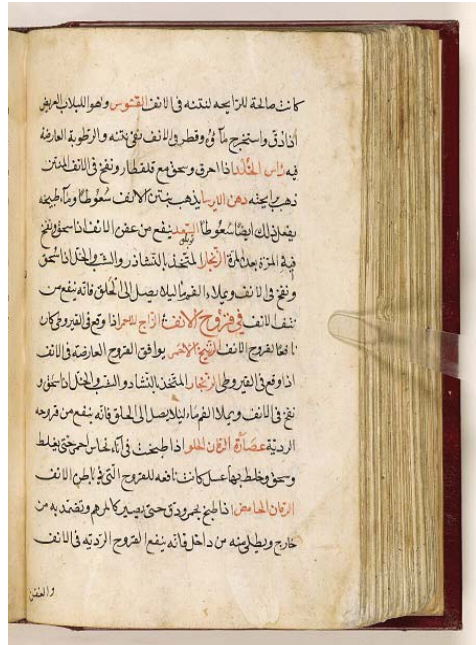 كانت صالحة للرايحه لنتنه فى الانف القسوس وهو اللبلاب العريض
اذا دق واستخرج ماؤه وقطر فى الانف نقى نتنه والرطوبة العارضة
فيه راس الخلد اذا احرق وسحق مع قلقطار ونفخ فى الانف المنتن
ذهب برايحته دهن الايرسا يذهب بنتن الانف سعوطا وماء طبيخه
يفعل ذلك ايضا سعوطا السعد ينفع من عفن الانف اذا سحق ونفخ
فيه المرة بعد المرة الزنجار المتخذ بالنشادر والشب والخل اذا سحق
ونفخ فى الانف ويملاء الفم ماء ليلا يصل الى الحلق فانه ينفع من
نتن الانف فى قروح الانف الزاج الاحمر اذا وقع فى القيروطى كان
نافعا لقروح الانف الزرنيخ الاحمر يوافق القروح العارضة فى الانف
اذا وقع فى القيروطى الزنجار المتخذ بالنشادر والشب والخل اذا سحق و
نفخ فى الانف ويملا الفم ماء ليلا يصل الى الحلق فانه ينفع من قروحه
الردية عصارة الرمان الحلو اذا طبخت فى اناء نحاس احمر حتى يغلظ
وسحق وخلط بها عسل كانت نافعه للقروح التى فى باطن الانف
الرمان الحامض اذا طبخ بخمر ودق حتى يصير كالمرهم وتضمد به من
خارج ويطلى منه من داخل فانه ينفع القروح الردية فى الانف
والعفن